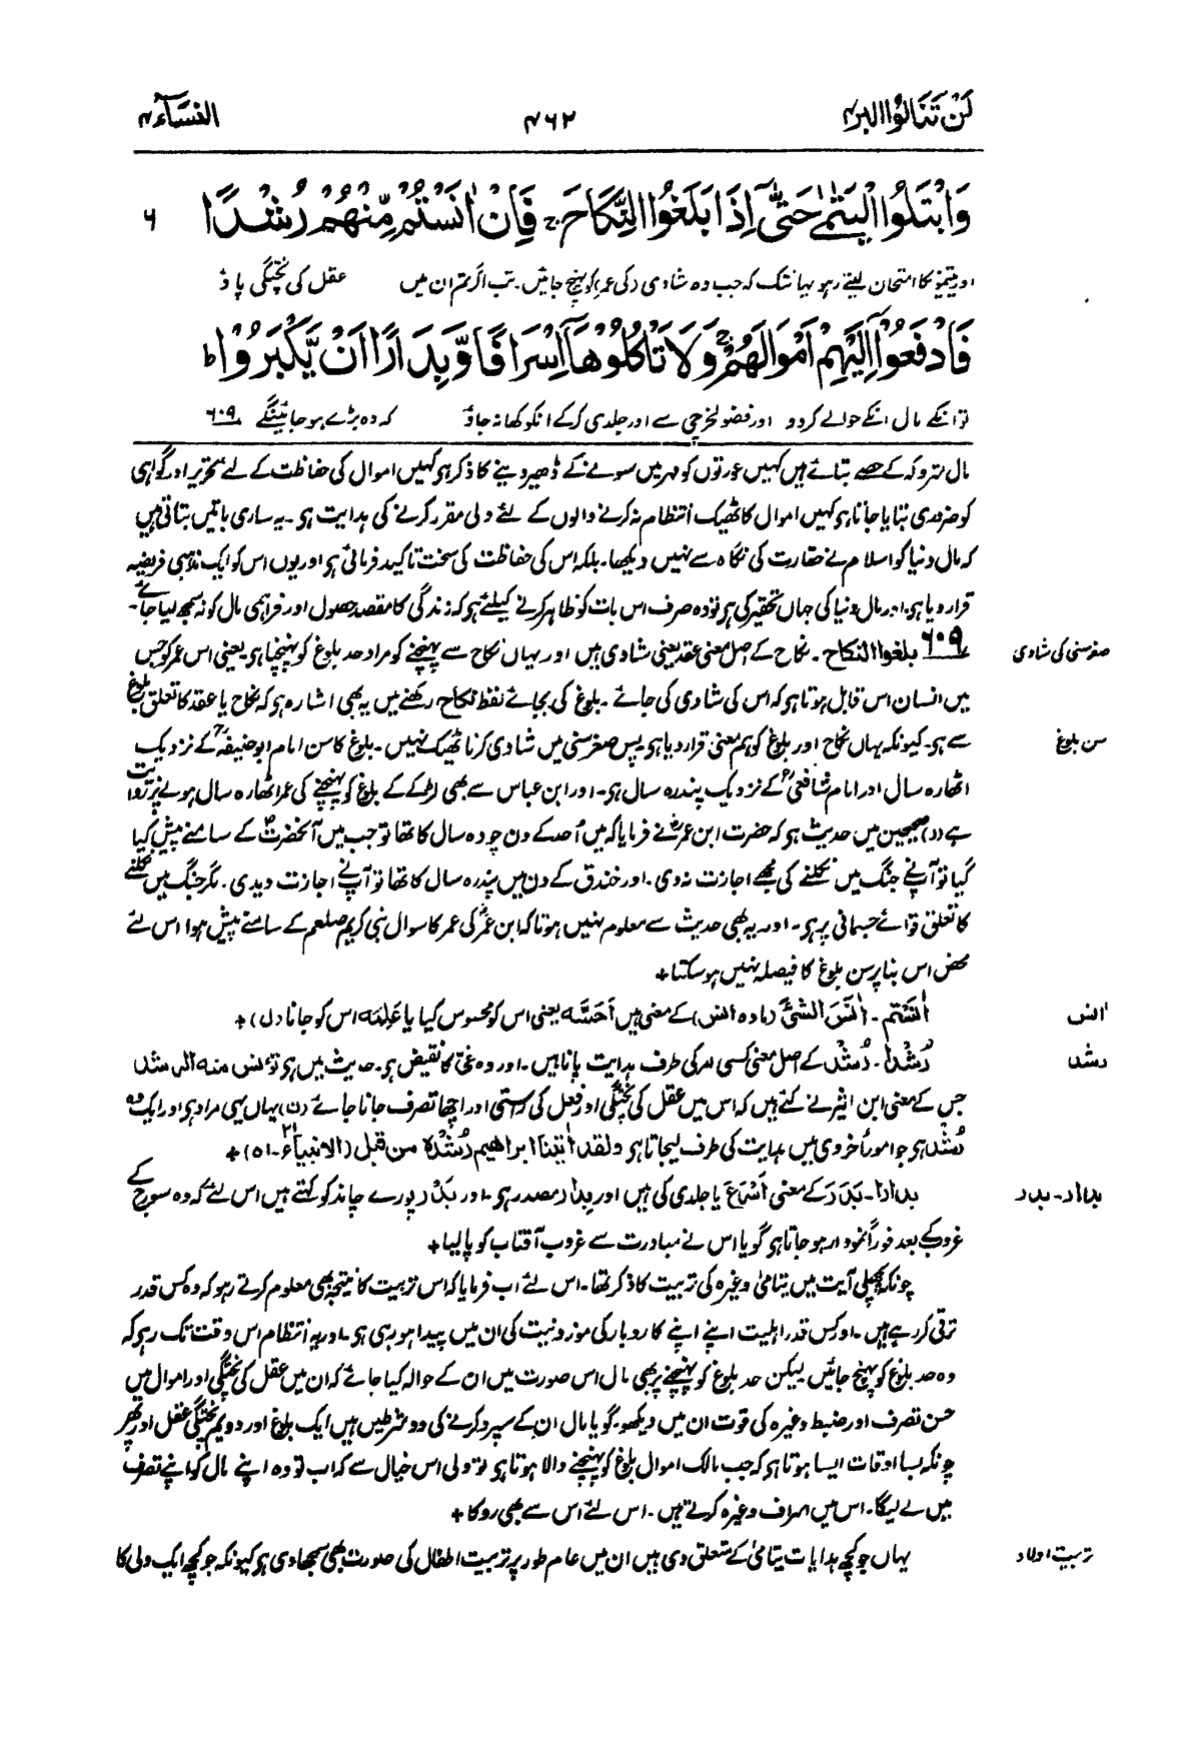 لَنْ تَنَالُوا البر۴
۴۶۲
النسآء۴
وَابْتَلُوا الْيَتٰمٰى حَتّٰٓى اِذَا بَلَغُوا النِّكَاحَ ۚ فَاِنْ اٰنَسْتُمْ مِّنْهُمْ رُشْدًا
۶
اور یتیموں کا امتحان لیتے رہو یہانتک کہ جب وہ شادی (کی عمر) کو پہنچ جائیں۔ تب اگر تم ان میں عقل کی پختگی پاؤ
فَادْفَعُوْٓا اِلَيْهِمْ اَمْوَالَهُمْ ۚ وَلَا تَاْكُلُوْهَآ اِسْرَافًا وَّبِدَارًا اَنْ يَّكْبَرُوْا ؕ
تو انکے مال انکے حوالے کردو اور فضولخرچی سے اور جلدی کرکے انکو کھا نہ جاؤ کہ وہ بڑے ہو جائینگے ۶۰۹
مال متروکہ کے حصے بتائے ہیں کہیں عورتوں کو مہر میں سونے کے ڈھیر دینے کا ذکر ہو کہیں اموال کی حفاظت کے لئے تحریر اور گواہی
کو ضروری بتایا جاتا ہو کہیں اموال کا ٹھیک انتظام نہ کرنے والوں کے لئے ولی مقرر کرنے کی ہدایت ہو۔ یہ ساری باتیں بتاتی ہیں
کہ مال دنیا کو اسلام نے حقارت کی نگاہ سے نہیں دیکھا۔ بلکہ اس کی حفاظت کی سخت تاکید فرمائی ہو اور یوں اس کو ایک مذہبی فریضہ
قرار دیا ہو۔ اور مال دنیا کی جہاں تحقیر کی ہو تو وہ صرف اس بات کو ظاہر کرنے کیلئے ہو کہ زندگی کا مقصد حصول اور فراہمی مال کو نہ سمجھ لیا جائے۔
صغر سنی کی شادی
۶۰۹ بلغوا النکاح۔ نکاح کے اصل معنی عقد یعنی شادی ہیں اور یہاں نکاح سے پہنچنے کو مراد حد بلوغ کو پہنچنا ہو۔ یعنی اس عمر کو جس
میں انسان اس قابل ہوتا ہو کہ اس کی شادی کی جائے۔ بلوغ کی بجائے لفظ نکاح رکھنے میں یہ بھی اشارہ ہو کہ نکاح یا عقد کا تعلق بلوغ
سن بلوغ
سے ہو۔ کیونکہ یہاں نکاح اور بلوغ کو ہم معنی قرار دیا ہو۔ پس صغر سنی میں شادی کرنا ٹھیک نہیں۔ بلوغ کا سن امام ابو حنیفہؒ کے نزدیک
اٹھارہ سال اور امام شافعیؒ کے نزدیک پندرہ سال ہو۔ اور ابن عباس سے بھی لڑکے کے بلوغ کو پہنچنے کی عمر اٹھارہ سال ہونے پر روایت
ہے (د) صحیحین میں حدیث ہو کہ حضرت ابن عمرؓ نے فرمایا کہ میں اُحد کے دن چودہ سال کا تھا تو جب میں آنحضرتؐ کے سامنے پیش کیا
گیا تو آپنے جنگ میں نکلنے کی مجھے اجازت نہ دی۔ اور خندق کے دن میں پندرہ سال کا تھا تو آپنے اجازت دیدی۔ مگر جنگ میں نکلنے
کا تعلق قوائے جسمانی پر ہو۔ اور یہ بھی حدیث سے معلوم نہیں ہوتا کہ ابن عمرؓ کی عمر کا سوال نبی کریم صلعم کے سامنے پیش ہوا اس لئے
محض اس بنا پر سن بلوغ کا فیصلہ نہیں ہو سکتا+
انس
اٰنستم۔ اٰنَسَ الشَّئَ (مادہ انس) کے معنی ہیں اَحَسَّه یعنی اس کو محسوس کیا یا عَلِمَه اس کو جانا (ل)+
رشد
رُشْدًا۔ رُشْد کے اصل معنی کسی امر کی طرف ہدایت پانا ہیں۔ اور وہ غیّ کا نقیض ہو۔ حدیث میں ہو تؤنس منه الرشد
جس کے معنی ابن اثیر نے کئے ہیں کہ اس میں عقل کی پختگی اور فعل کی راستی اور اچھا تصرف جانا جائے (ن) یہاں یہی مراد ہو اور ایک وہ
رُشد ہو جو امور اُخروی میں ہدایت کی طرف لیجاتا ہو ولقد اٰتینا ابراھیم رُشْدَهٗ من قبل (الانبیآء۲۱-۵۱)+
بدار - بدر
بدارا۔ بَدَرَ کے معنی اَسْرَعَ یا جلدی کی ہیں اور بِدار مصدر ہو۔ اور بَدْر پورے چاند کو کہتے ہیں اس لئے کہ وہ سورج کے
غروب کے بعد فوراً نمودار ہو جاتا ہو گویا اس نے مبادرت سے غروب آفتاب کو پا لیا+
چونکہ پچھلی آیت میں یتامیٰ وغیرہ کی تربیت کا ذکر تھا۔ اس لئے اب فرمایا کہ اس تربیت کا نتیجہ بھی معلوم کرتے رہو کہ وہ کس قدر
ترقی کر رہے ہیں۔ اور کس قدر اہلیت اپنے اپنے کاروبار کی موزونیت کی ان میں پیدا ہو رہی ہو۔ اور یہ انتظام اس وقت تک رہو کہ
وہ حد بلوغ کو پہنچ جائیں لیکن حد بلوغ کو پہنچنے پر بھی مال اس صورت میں ان کے حوالہ کیا جائے کہ ان میں عقل کی پختگی اور اموال میں
حسن تصرف اور ضبط وغیرہ کی قوت ان میں دیکھو۔ گویا مال ان کے سپرد کرنے کی دو شرطیں ہیں ایک بلوغ اور دویم پختگی عقل اور پھر
چونکہ بسا اوقات ایسا ہوتا ہو کہ جب مالک اموال بلوغ کو پہنچنے والا ہوتا ہو تو ولی اس خیال سے کہ اب تو وہ اپنے مال کو اپنے تصرف
میں لے لیگا۔ اس میں اسراف وغیرہ کرتے ہیں۔ اس لئے اس سے بھی روکا+
تربیت اولاد
یہاں جو کچھ ہدایات یتامیٰ کے متعلق دی ہیں ان میں عام طور پر تربیت اطفال کی صورت بھی سمجھا دی ہو کیونکہ جو کچھ ایک ولی کا